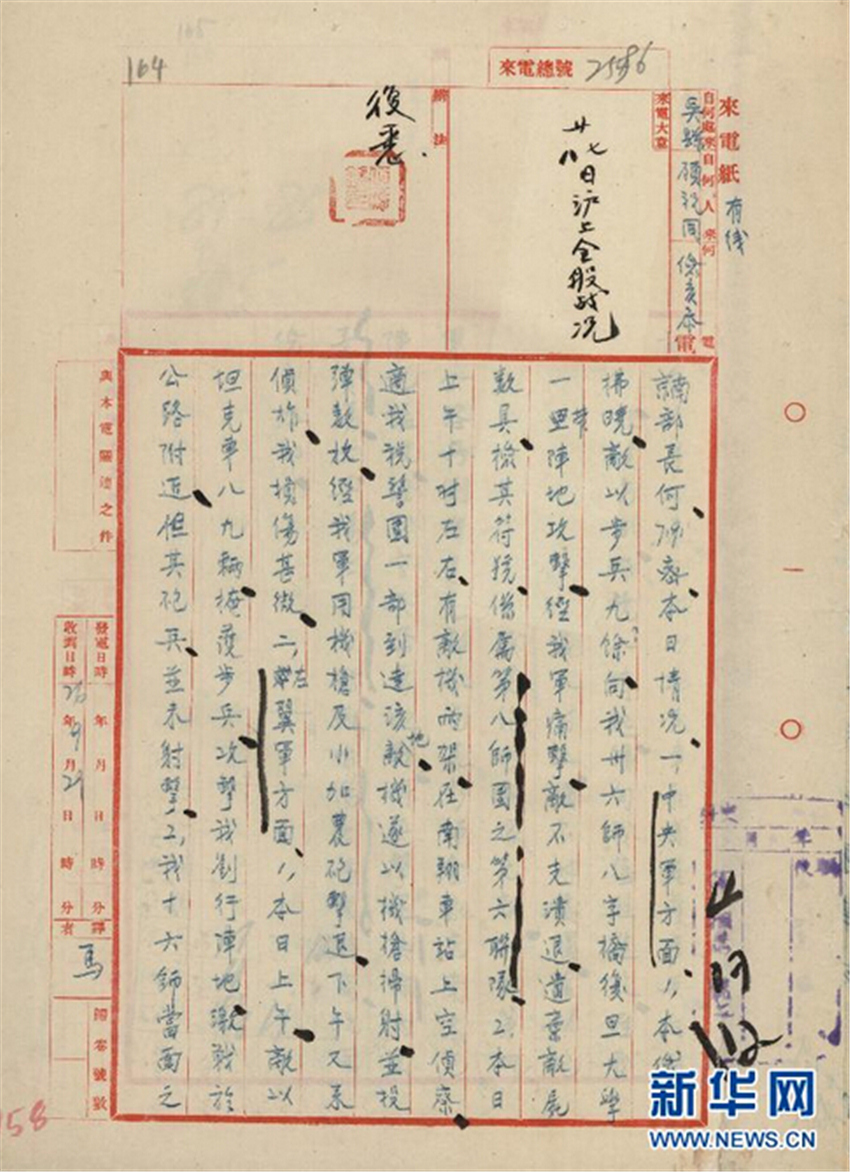 164
來電總號 2586
來電紙 有线
自何處來 自何人來 何電
吳縣 顧祝同
來電大意
廿七八日沪上全般战况
辦法
復悉.
南京部長何 密本日情况一,中央軍方面1,本晚
拂曉敵以步兵九餘向我卅六師八字橋復旦大學
一帶陣地攻擊經我軍痛擊敵不支潰退遺棄敵屍
數具檢其符號係屬第八師團之第六聯隊2.本日
上午十时左右有敵機兩架在南翔車站上空偵察
適我稅警團一部到達該地敵機遂以機槍掃射並投
彈數枚經我軍用機槍及小加農砲擊退下午又來
偵炸我損傷甚微二,左翼軍方面1,本日上午敵以
坦克車八九輛掩護步兵攻擊我劉行陣地激戰於
公路附近但其砲兵並未射擊2,我十六師當面之
與本電關連之件
發電日時 年 月 日 時 分
收到日時 26年9月29日 時 分
譯者 馬
歸卷號數
〇一〇
58
新华网
WWW.NEWS.CN